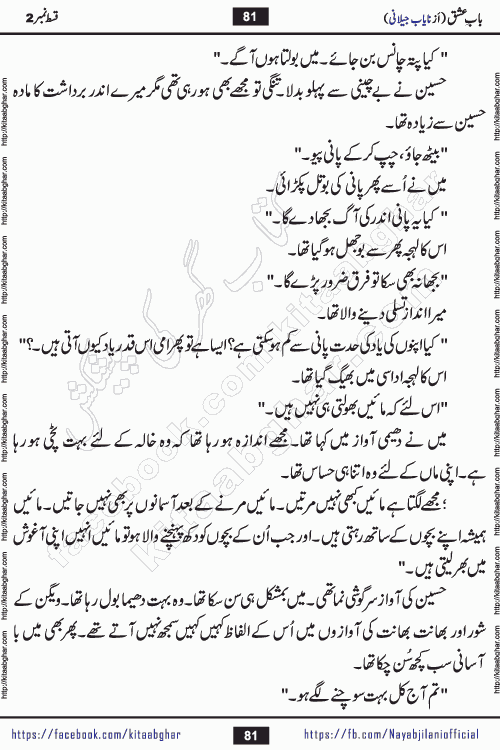 باب عشق (از نایاب جیلانی) 81 قسط نمبر 2
" کیا پتہ چانس بن جائے۔ میں بولتا ہوں آگے۔"
حسین نے بے چینی سے پہلو بدلا۔ تنگی تو مجھے بھی ہو رہی تھی مگر میرے اندر برداشت کا مادہ
حسین سے زیادہ تھا۔
"بیٹھ جاؤ، چپ کر کے پانی پیو۔"
میں نے اُسے پھر پانی کی بوتل پکڑائی۔
" کیا یہ پانی اندر کی آگ بجھا دے گا۔"
اس کا لہجہ پھر سے بوجھل ہو گیا تھا۔
"بجھا نہ بھی سکا تو فرق ضرور پڑے گا۔"
میرا انداز تسلی دینے والا تھا۔
" کیا اپنوں کی یاد کی حدت پانی سے کم ہو سکتی ہے؟ ایسا ہے تو پھر امی اس قدر یاد کیوں آتی ہیں۔؟"
اس کا لہجہ اداسی میں بھیگ گیا تھا۔
"اس لئے کہ مائیں بھولتی ہی نہیں ہیں۔"
میں نے دھیمی آواز میں کہا تھا۔ مجھے اندازہ ہو رہا تھا کہ وہ خالہ کے لئے بہت ٹچی ہو رہا
ہے۔ اپنی ماں کے لئے وہ اتنا ہی حساس تھا۔
'مجھے لگتا ہے مائیں کبھی نہیں مرتیں۔ مائیں مرنے کے بعد آسمانوں پر بھی نہیں جاتیں۔ مائیں
ہمیشہ اپنے بچوں کے ساتھ رہتی ہیں۔ اور جب اُن کے بچوں کو دکھ پہنچنے والا ہو تو مائیں انہیں اپنی آغوش
میں بھر لیتی ہیں۔"
حسین کی آواز سرگوشی نما تھی۔ میں بمشکل ہی سن سکا تھا۔ وہ بہت دھیما بول رہا تھا۔ ویگن کے
شور اور بھانت بھانت کی آوازوں میں اُس کے الفاظ کہیں کہیں سمجھ نہیں آتے تھے۔ پھر بھی میں با
آسانی سب کچھ سُن چکا تھا۔
"تم آج کل بہت سوچنے لگے ہو۔"
https://facebook.com/kitaabghar 81 https://fb.com/Nayabjilaniofficial
http://kitaabghar.com
کتاب گھر کی پیشکش
kitaabghar.com
facebook.com/kitaabghar